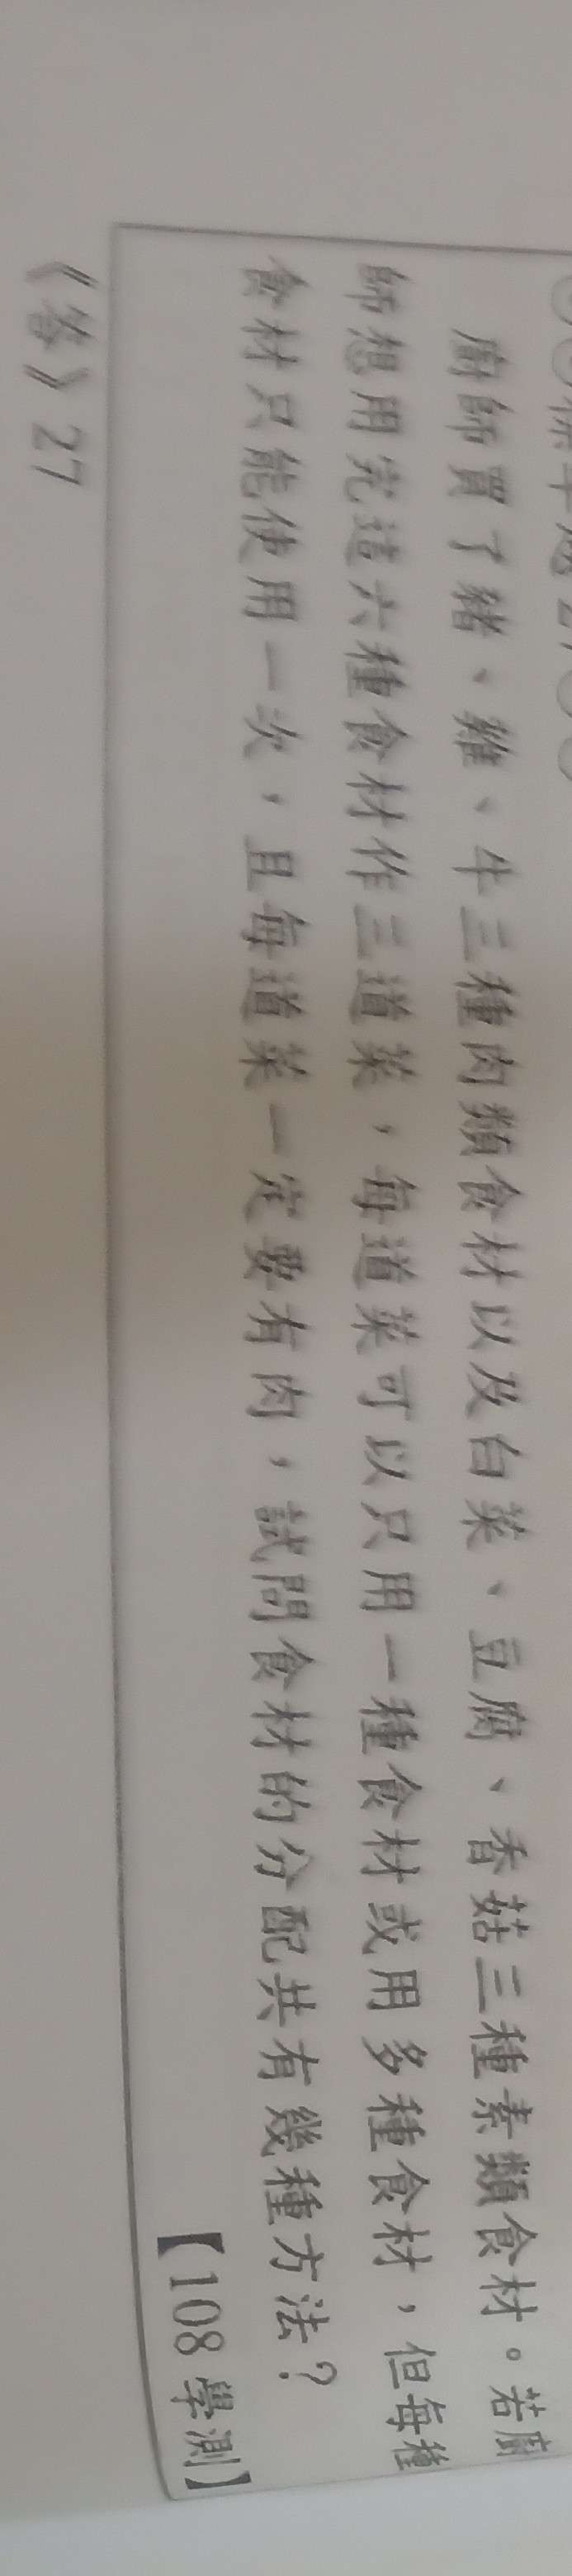 廚師買了豬、雞、牛三種肉類食材以及白菜、豆腐、香菇三種素類食材。若廚
師想用完這六種食材作三道菜，每道菜可以只用一種食材或用多種食材，但每種
食材只能使用一次，且每道菜一定要有肉，試問食材的分配共有幾種方法？
【108 學測】
《答》27